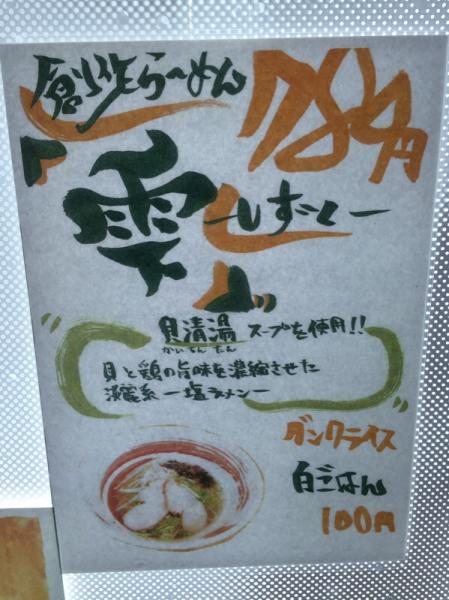 創作らーめん
784円
雫
ーしずくー
貝清湯 スープを使用!!
かいちんたん
貝と鶏の旨味を濃縮させた
淡麗系ー塩ラメンー
ダンクライス
白ごはん
100円